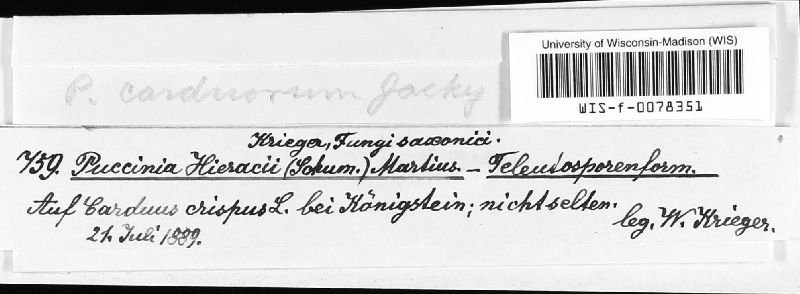 University of Wisconsin-Madison (WIS)
WIS-f-0078351
P. carduorum Jacky
Krieger, Fungi saxonici.
759. Puccinia Hieracii (Schum.) Martius. – Teleutosporenform.
Auf Carduus crispus L. bei Königstein; nicht selten.
21. Juli 1889.
leg. W. Krieger.